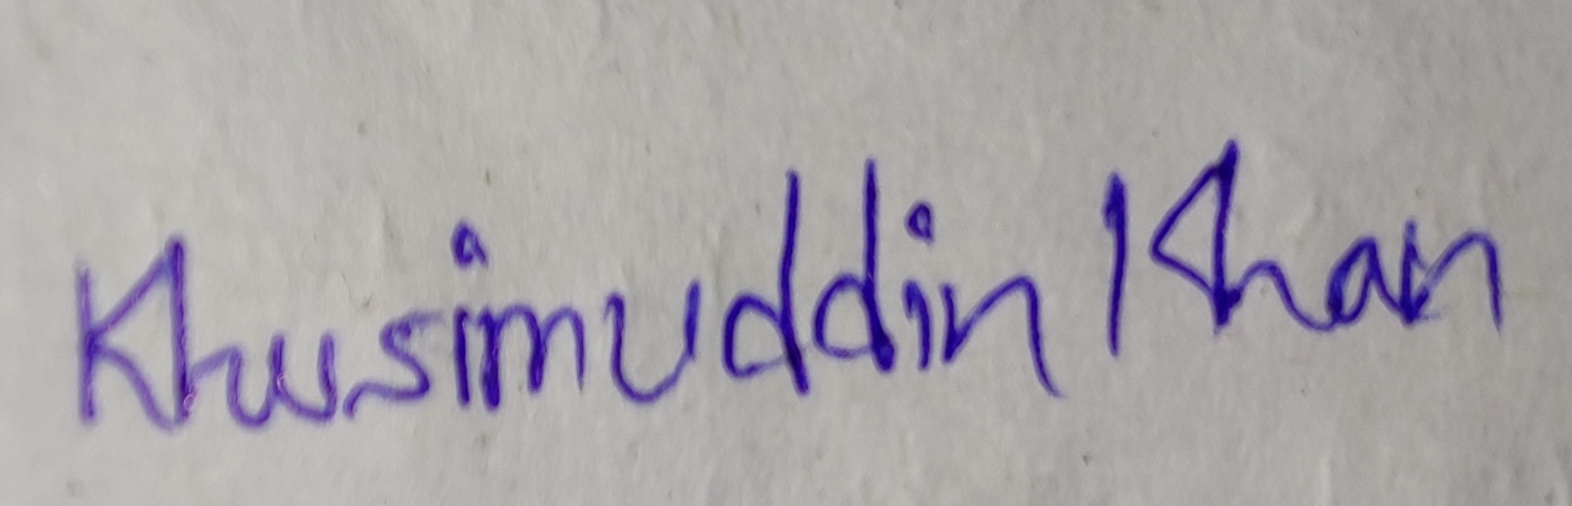 Khusimuddin Khan